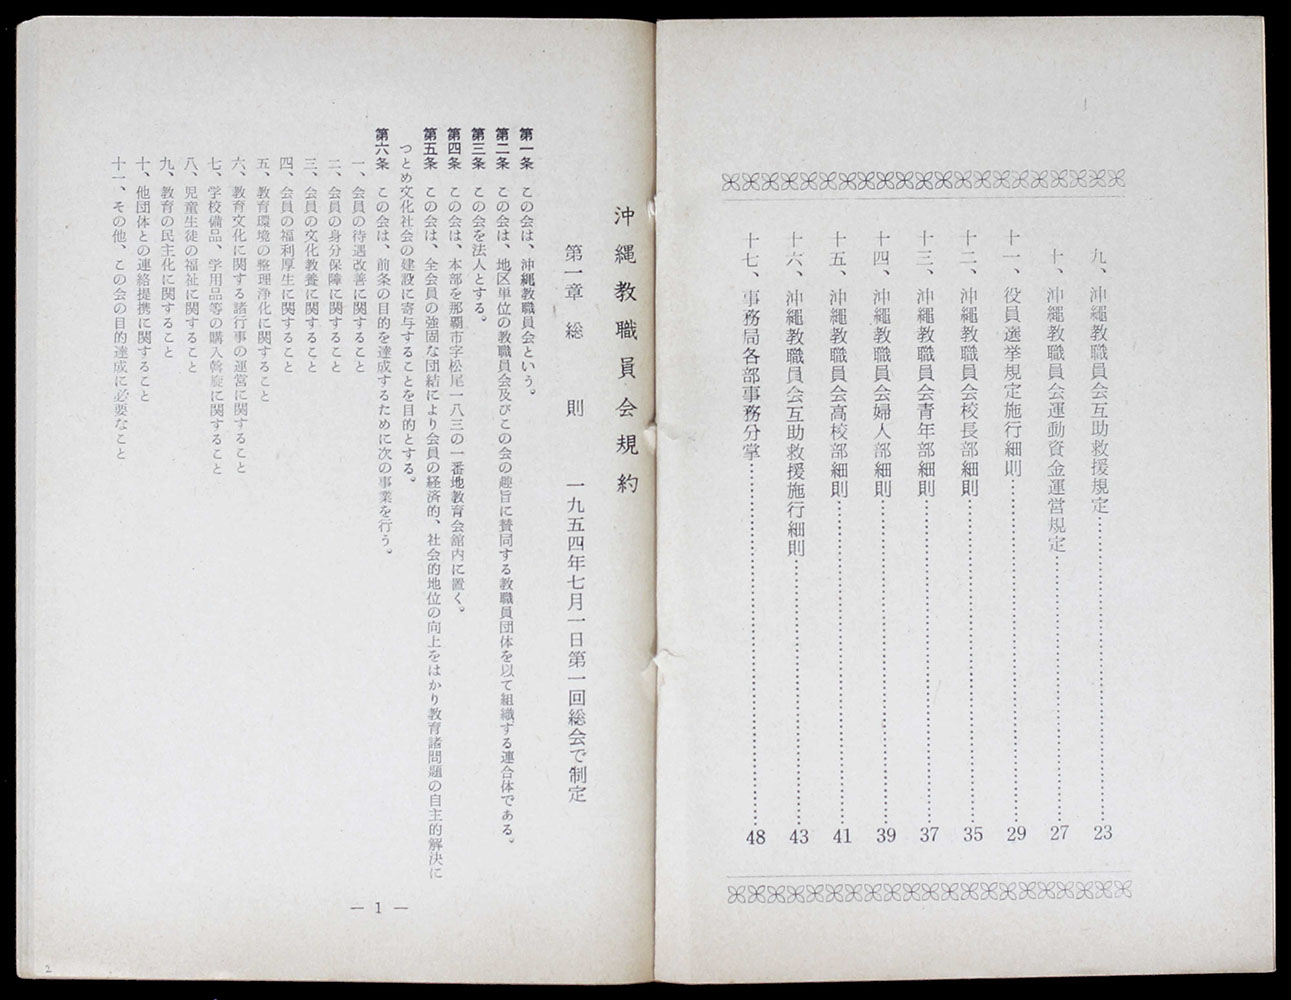 九、沖縄教職員会互助救援規定……23
十、沖縄教職員会運動資金運営規定……27
十一、役員選挙規定施行細則……29
十二、沖縄教職員会校長部細則……35
十三、沖縄教職員会青年部細則……37
十四、沖縄教職員会婦人部細則……39
十五、沖縄教職員会高校部細則……41
十六、沖縄教職員会互助救援施行細則……43
十七、事務局各部事務分掌……48
沖縄教職員会規約
第一章 総則 一九五四年七月一日第一回総会で制定
第一条 この会は、沖縄教職員会という。
第二条 この会は、地区単位の教職員会及びこの会の趣旨に賛同する教職員団体を以て組織する連合体である。
第三条 この会を法人とする。
第四条 この会は、本部を那覇市字松尾一八三の一番地教育会館内に置く。
第五条 この会は、全会員の強固な団結により会員の経済的、社会的地位の向上をはかり教育諸問題の自主的解決に
つとめ文化社会の建設に寄与することを目的とする。
第六条 この会は、前条の目的を達成するために次の事業を行う。
一、会員の待遇改善に関すること
二、会員の身分保障に関すること
三、会員の文化教養に関すること
四、会員の福利厚生に関すること
五、教育環境の整理浄化に関すること
六、教育文化に関する諸行事の運営に関すること
七、学校備品、学用品等の購入斡旋に関すること
八、児童生徒の福祉に関すること
九、教育の民主化に関すること
十、他団体との連絡提携に関すること
十一、その他、この会の目的達成に必要なこと
— 1 —
2